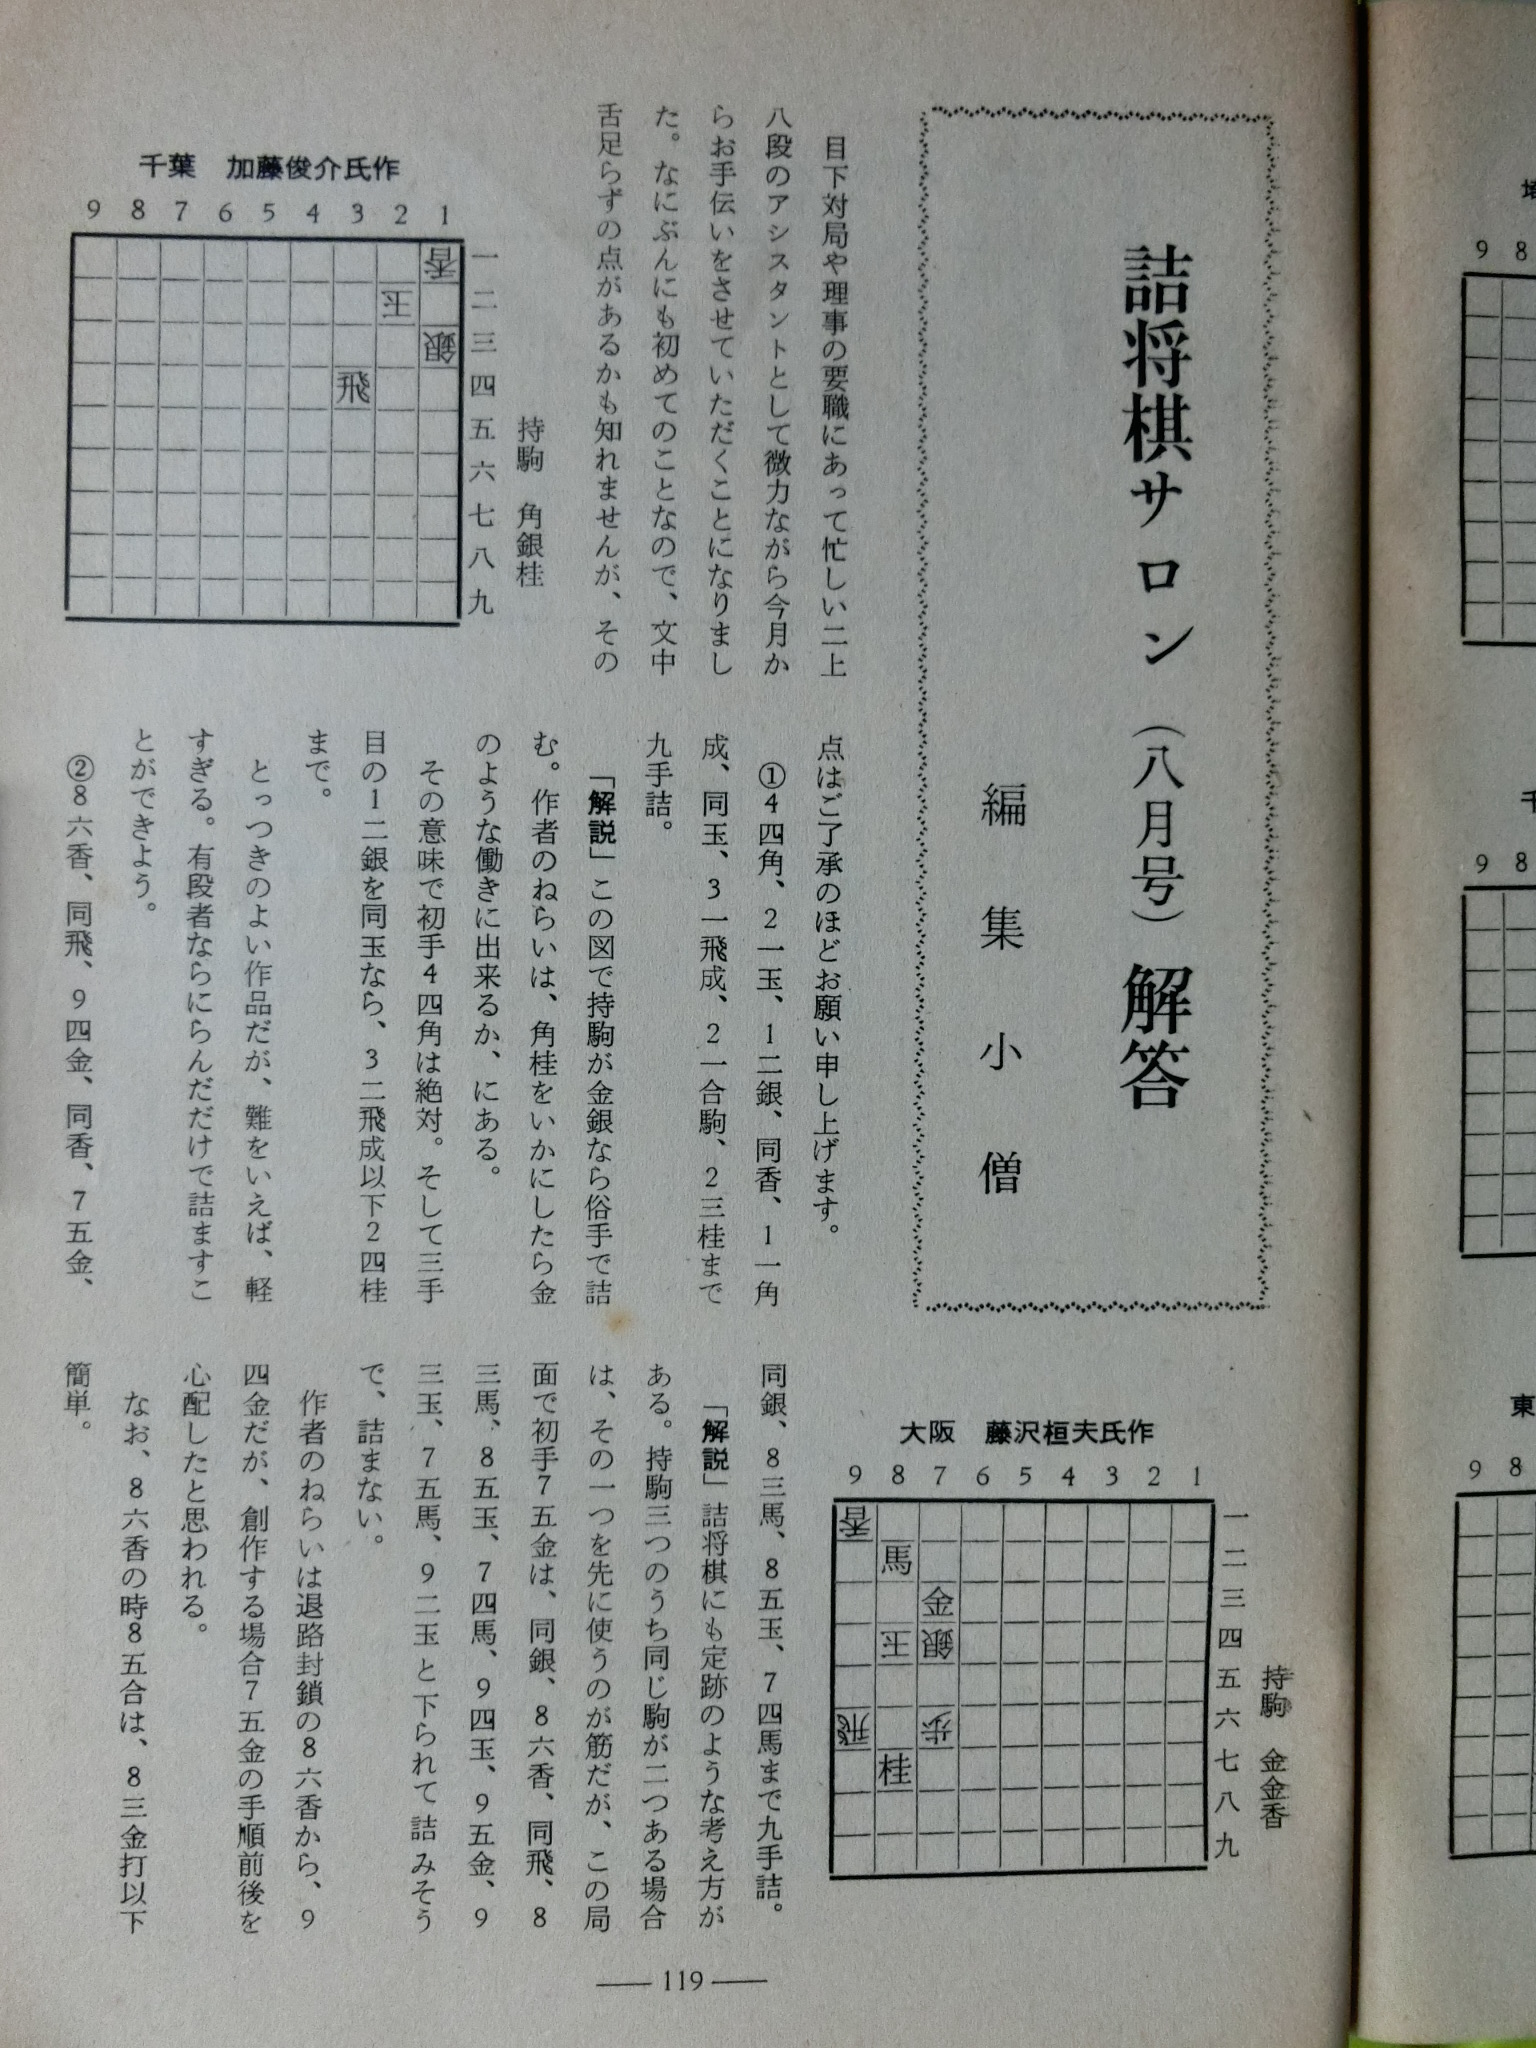 詰将棋サロン（八月号）解答
編集小僧
目下対局や理事の要職にあって忙しい二上
八段のアシスタントとして微力ながら今月か
らお手伝いをさせていただくことになりまし
た。なにぶんにも初めてのことなので、文中
舌足らずの点があるかも知れませんが、その
千葉　加藤俊介氏作
9 8 7 6 5 4 3 2 1
一
二
三
四
五
六
七
八
九
香
玉
銀
飛
持駒　角銀桂
点はご了承のほどお願い申し上げます。
①4四角、2一玉、1二銀、同香、1一角
成、同玉、3一飛成、2一合駒、2三桂まで
九手詰。
「解説」この図で持駒が金銀なら俗手で詰
む。作者のねらいは、角桂をいかにしたら金
のような働きに出来るか、にある。
その意味で初手4四角は絶対。そして三手
目の1二銀を同玉なら、3二飛成以下2四桂
まで。
とっつきのよい作品だが、難をいえば、軽
すぎる。有段者ならにらんだだけで詰ますこ
とができよう。
②8六香、同飛、9四金、同香、7五金、
大阪　藤沢桓夫氏作
9 8 7 6 5 4 3 2 1
一
二
三
四
五
六
七
八
九
香
馬
金
玉 銀
飛 歩
桂
持駒　金金香
同銀、8三馬、8五玉、7四馬まで九手詰。
「解説」詰将棋にも定跡のような考え方が
ある。持駒三つのうち同じ駒が二つある場合
は、その一つを先に使うのが筋だが、この局
面で初手7五金は、同銀、8六香、同飛、8
三馬、8五玉、7四馬、9四玉、9五金、9
三玉、7五馬、9二玉と下られて詰みそう
で、詰まない。
作者のねらいは退路封鎖の8六香から、9
四金だが、創作する場合7五金の手順前後を
心配したと思われる。
なお、8六香の時8五合は、8三金打以下
簡単。
119
9 8
9 8
東
9 8